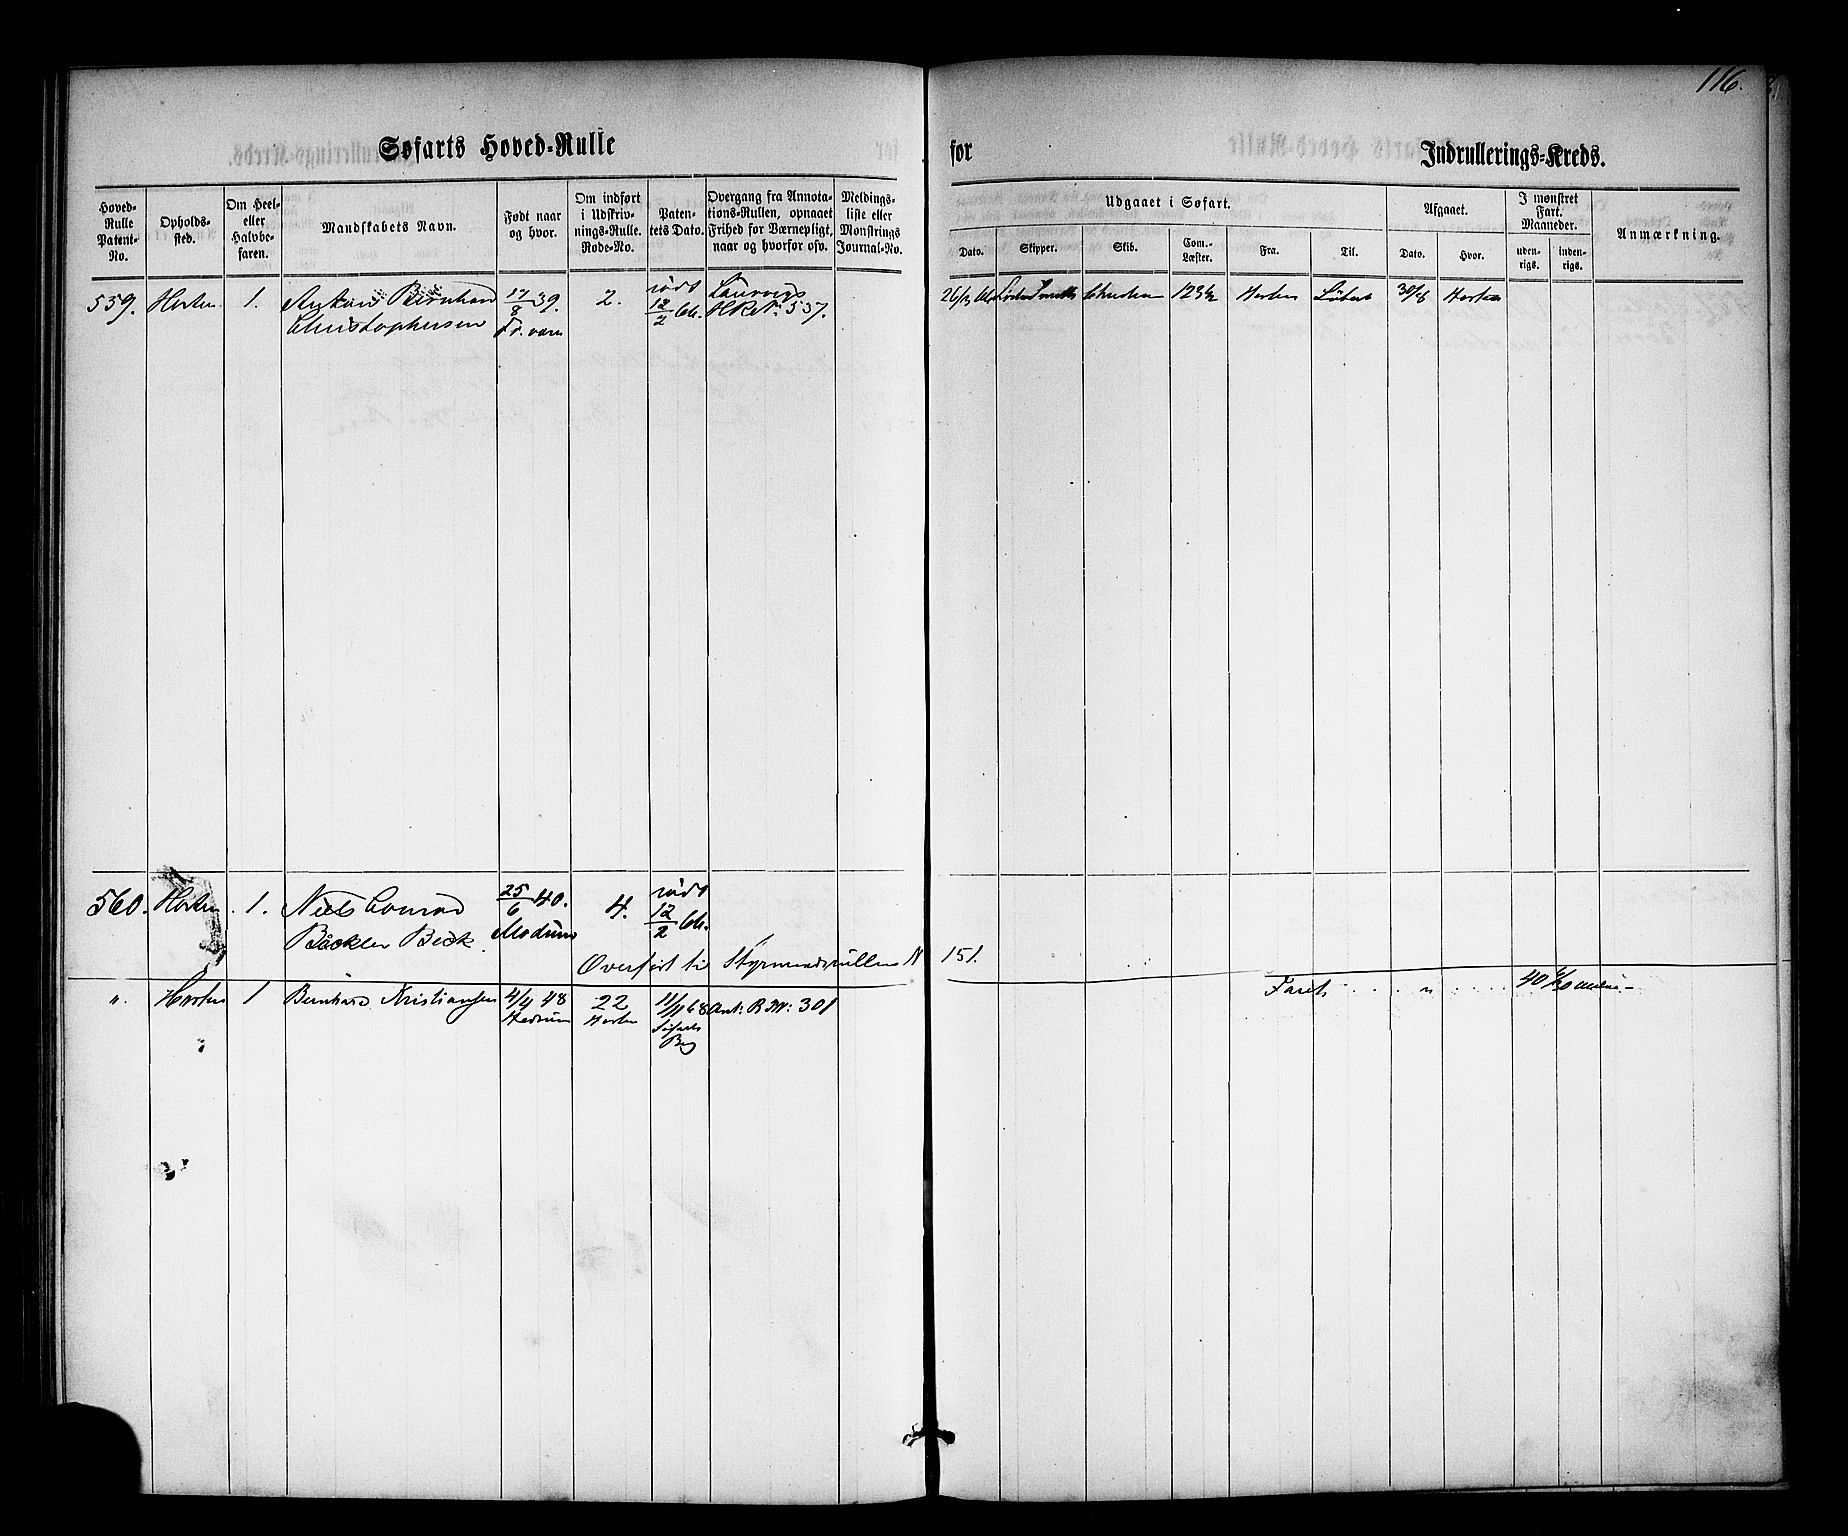 116.
Søfarts Hoved-Rulle
for
Indrullerings-Kreds.
Hoved-Rulle Patent-No.
Opholds-sted.
Om Heel- eller Halvbe-faren.
Mandskabets Navn.
Født naar og hvor.
Om indført i Udskriv-nings-Rulle. Rode-No.
Paten-tets Dato.
Overgang fra Annota-tions-Rullen, opnaaet Frihed for Værnepligt, naar og hvorfor osv.
Meldings-liste eller Mønstrings Journal-No.
Udgaaet i Søfart.
Dato.
Skipper.
Skib.
Com.-Læster.
Fra.
Til.
Afgaaet.
Dato.
Hvor.
I mønstret Fart. Maaneder.
uden-rigs.
inden-rigs.
Anmærkning.
559. Horten 1. Anton Bernhard 17/8 39. 2. rødt 12/2 66. Laurvigs
Christophersen HR No. 557.
123½ Horten 30/8 Horten
560. Horten 1. Niels Conrad 25/6 40. 4. rødt 12/2 66.
Bäckler Beck Modum
Overført til Styrmandsrullen N 151.
" Horten 1 Bernhard Kristiansen 4/4 48 22 11/11 68 Ant: R No: 301
Hedrum Horten Søfarts
Farets " 40